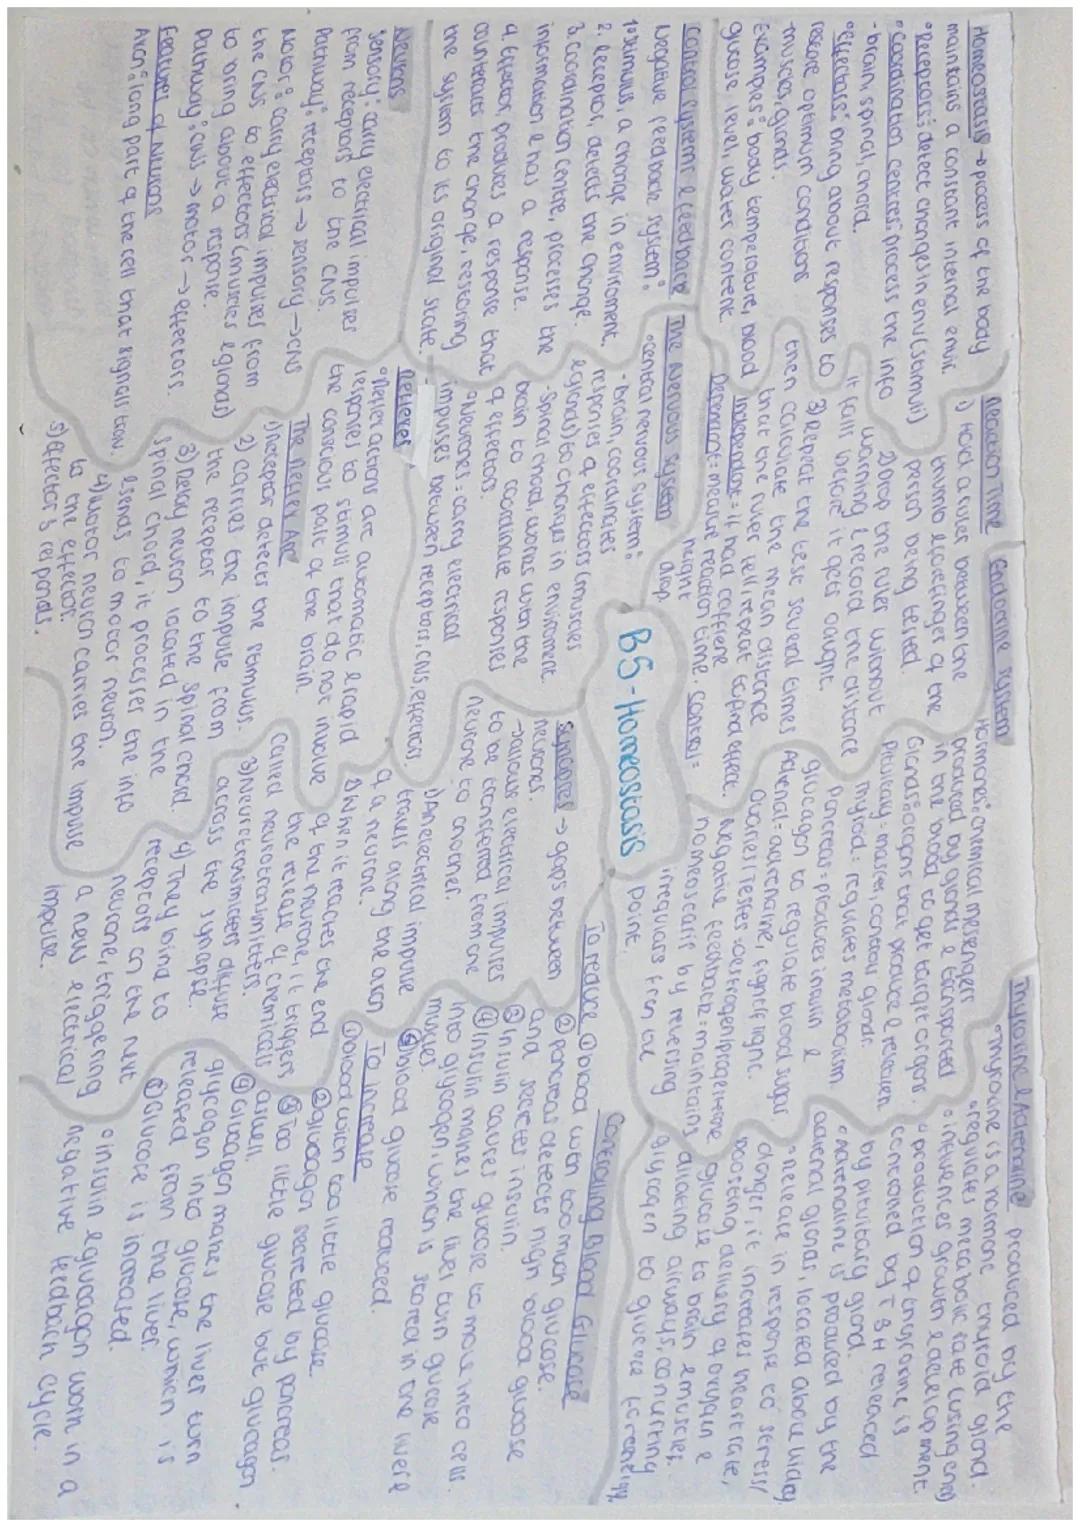 Homeostasis → process of the body
maintains a constant internal enviro
• Receptors: detect changes in env (stimuli)
• Coordination centres: process the info
- brain, spinal, chord.
• Effectors: bring about responses to
restore optimum conditions
- muscles, glands.
Examples: body temperature, blood
glucose level, water content.
Control systems & feedback
Negative feedback system:
1. Stimulus, a change in enviroment.
2. Receptor, detects the change.
3. Coordination centre, processes the
information & has a response.
4. Effector, produces a response that
counteracts the change, restoring
the system to its original state.
Neurons
Sensory: carry electrical impulses
from receptors to the CNS.
Pathway: receptors → sensory → CNS
Motor: carry electrical impulses from
the CNS to effectors (muscles & glands)
to bring about a response.
Pathway: CNS → motor → effectors.
Features of Neurons
Axon: long part of the cell that signals travel.
Reaction Time
1) Hold a ruler between the
thumb & forefinger of the
person being tested.
2) Drop the ruler without
warning & record the distance
it falls before it gets caught.
3) Repeat the test several times
then calculate the mean distance
that the ruler fell, repeat to find effect.
Independent = if had caffiene
Dependent = measure reaction time. Control =
height
drop
The Nervous System
• Central nervous system:
- brain, coordinates
responses of effectors (muscles
& glands) to changes in enviroment
- Spinal chord, works with the
brain to coordinate responses
of effectors.
• Neurones - carry electrical
impulses between receptors, CNS, effectors.
Reflexes
• Reflex actions are automatic & rapid
responses to stimuli that do not involve
the conscious part of the brain.
The Reflex Arc
1) Receptor detects the stimulus.
2) Carries the impulse from
the receptor to the spinal chord.
3) Relay neuron located in the
spinal chord, it processes the info
& sends to motor neuron.
4) Motor neuron carries the impulse
to the effector.
5) Effector responds.
B5 - Homeostasis
Endocrine System
Hormones: chemical messengers
produced by glands & transported
in the blood to get target organs.
Glands: organs that produce & release
Pituitary = master, controls glands.
Thyroid = regulates metabolism
Pancreas = produces insulin &
glucagon to regulate blood sugar.
Adrenal = adrenaline, fight/flight.
Ovaries/Testes = oestrogen/progesterone
Negative feedback = maintains
homeostasis by reversing
irregulars from set
point.
Synapses → gaps between
neurones.
- allows electrical impulses
to be transferred from one
neurone to another.
1) An electrical impulse
travels along the axon
of a neurone.
2) When it reaches the end
of the neurone, it triggers
the release of chemicals
called neurotransmitters.
3) Neurotransmitters diffuse
across the synapse.
4) They bind to
receptors on the next
neurone, triggering
a new electrical
impulse.
Thyroxine & Adrenaline
• Thyroxine is a hormone produced by the
thyroid gland.
• regulates metabolic rate (using energy)
• influences growth & development.
• production of thyroxine is
controlled by TSH released
by pituitary gland.
• Adrenaline is produced by the
adrenal glands, located above kidney
• release in response to stress/
danger, it increases heart rate,
boosting delivery of oxygen &
glucose to brain & muscles.
dilating airways, converting
glycogen to glucose for energy.
Controlling Blood Glucose
To reduce ① blood with too much glucose.
② Pancreas detects high blood glucose
and secretes insulin.
③ Insulin causes glucose to move into cells.
④ Insulin makes the liver turn glucose
into glycogen, which is stored in the liver &
muscles.
⑤ blood glucose reduced.
To increase
① blood with too little glucose
② glucagon secreted by pancreas.
③ Too little glucose but glucagon
as well.
④ Glucagon makes the liver turn
glycogen into glucose, which is
released from the liver.
⑤ Glucose is increased.
• insulin & glucagon work in a
negative feedback cycle.